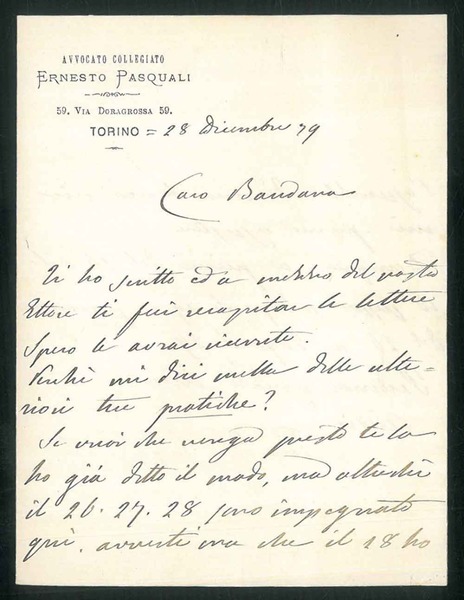 AVVOCATO COLLEGIATO
ERNESTO PASQUALI
59. VIA DORAGROSSA 59.
TORINO = 28 Dicembre 79
Caro Bandana
Ti ho scritto ed a mezzo del nostro
Ettore ti feci recapitare le lettere
Spero le avrai ricevute.
Perchè mi dici nulla delle ulte-
riori tue pratiche?
Se vuoi che venga presto te la
ho già detto il modo, ma
il 26. 27. 28 sono impegnato
qui. avverti ora che il 28 ho